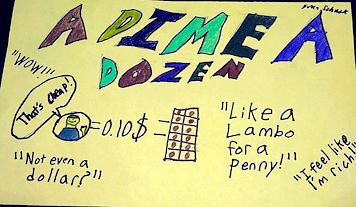 A DIME A
DOZEN
"WOW!"
That's cheap!
= 0.10$ =
"Like a
Lambo
for a
penny!"
"Not even a
dollar?"
"I feel like
I'm rich!"